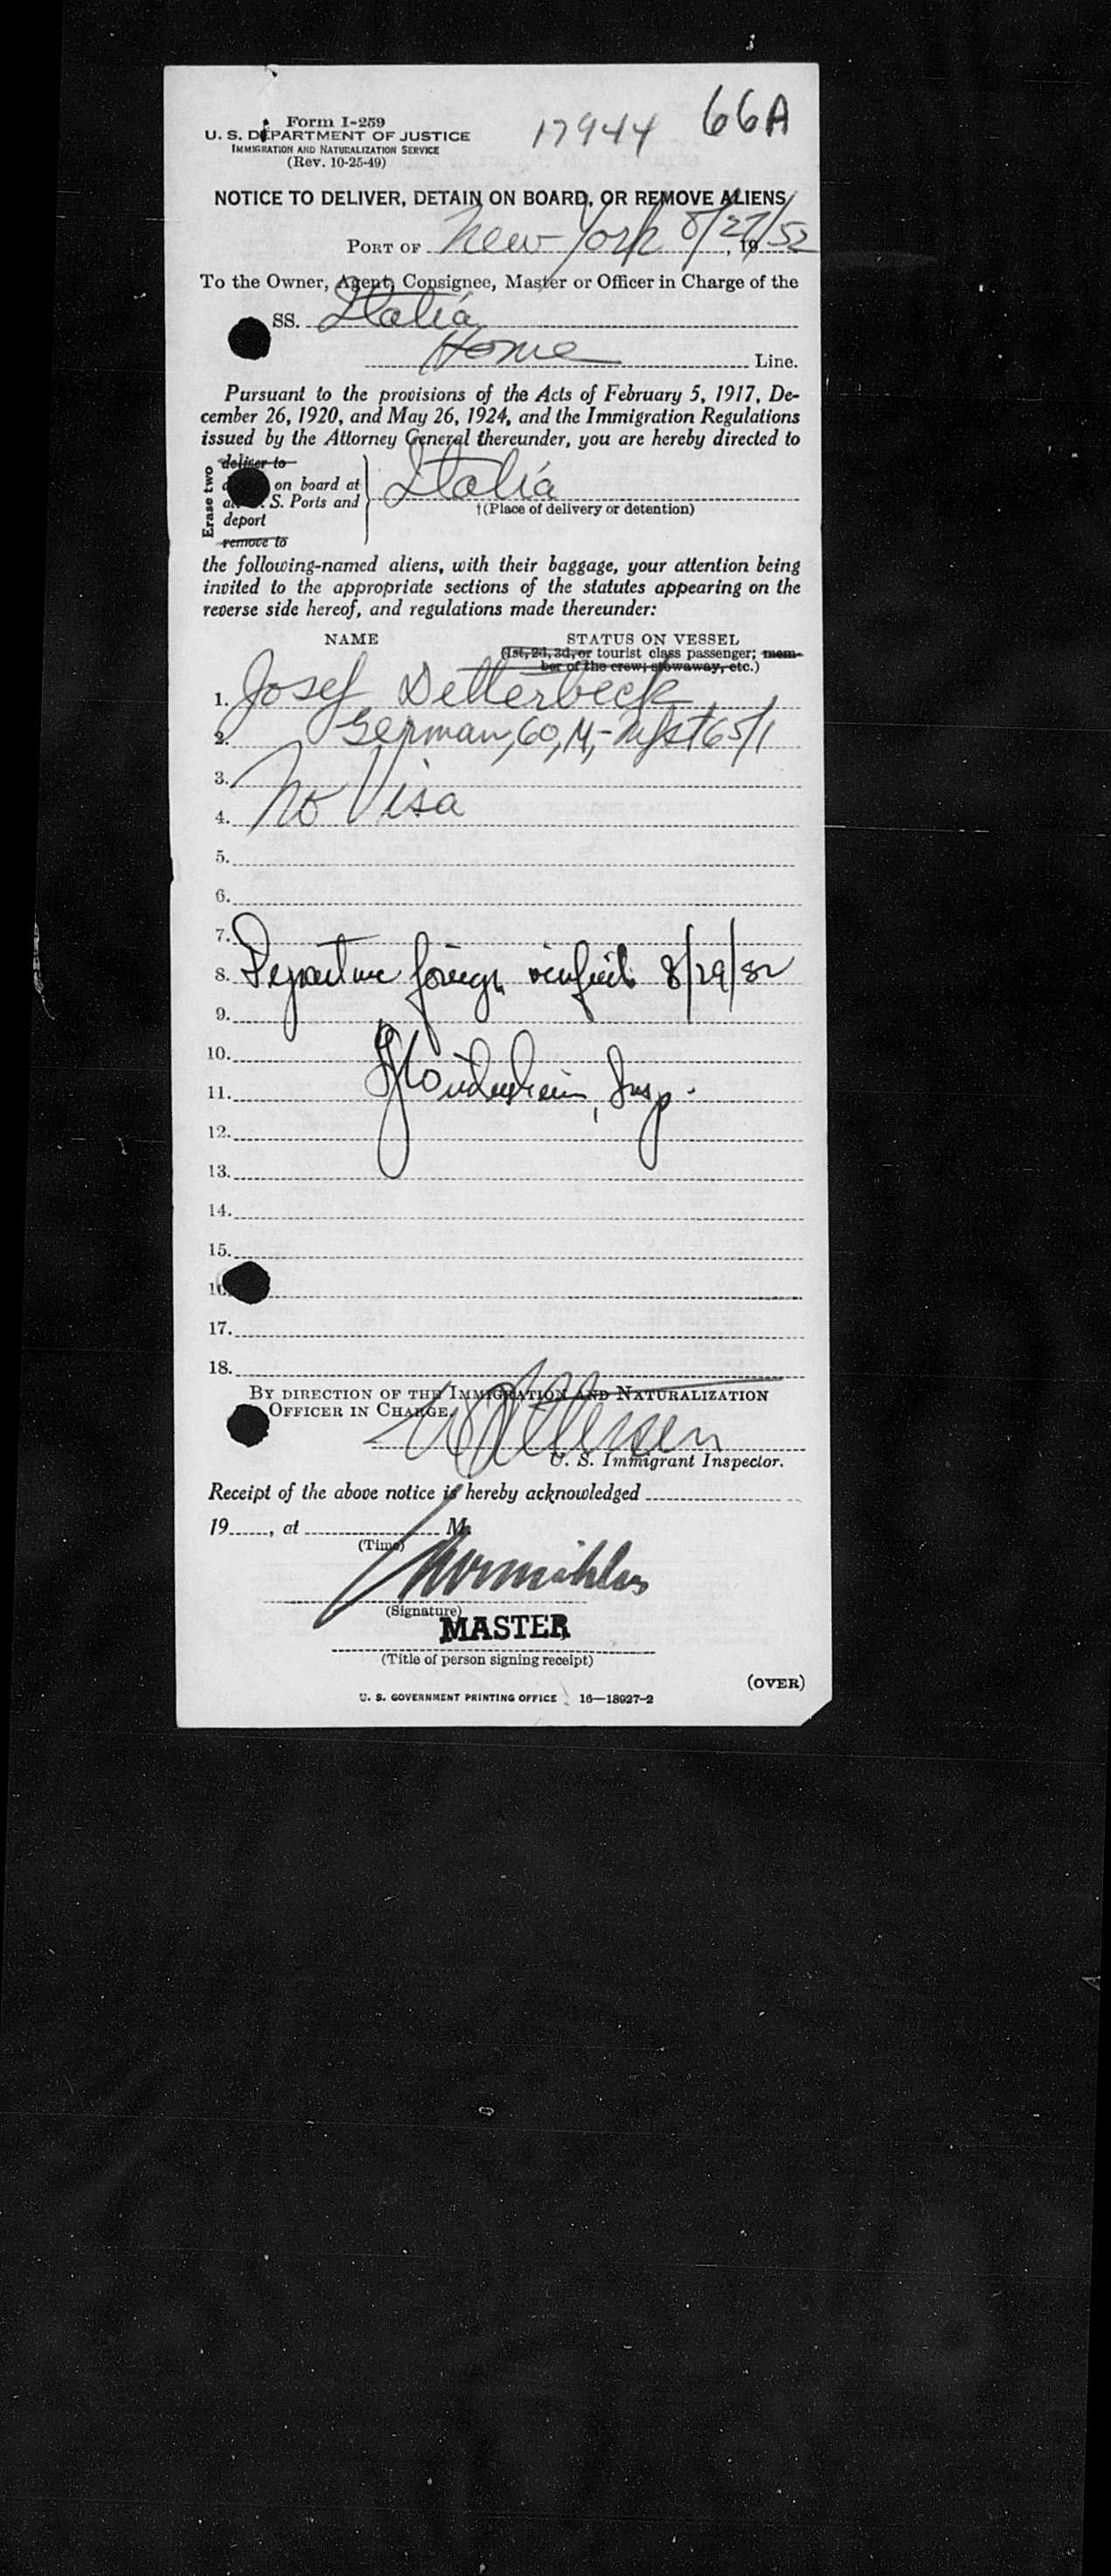 17944 66A
Form I-259
U. S. DEPARTMENT OF JUSTICE
IMMIGRATION AND NATURALIZATION SERVICE
(Rev. 10-25-49)
NOTICE TO DELIVER, DETAIN ON BOARD, OR REMOVE ALIENS
PORT OF New York 8/27/52, 19
To the Owner, Agent, Consignee, Master or Officer in Charge of the
SS. Italia
Home Line.
Pursuant to the provisions of the Acts of February 5, 1917, De-
cember 26, 1920, and May 26, 1924, and the Immigration Regulations
issued by the Attorney General thereunder, you are hereby directed to
Erase two
deliver to
on board at Italia
S. Ports and
†(Place of delivery or detention)
deport
remove to
the following-named aliens, with their baggage, your attention being
invited to the appropriate sections of the statutes appearing on the
reverse side hereof, and regulations made thereunder:
NAME STATUS ON VESSEL
(1st, 2d, 3d, or tourist class passenger; mem-
ber of the crew; stowaway, etc.)
1. Josef Detterbeck
2. German, 60, M, - Mfst 65/1
3.
4. No Visa
5.
6.
7.
8. Departure foreign verified 8/29/52
9.
10.
11. Insp.
12.
13.
14.
15.
16.
17.
18.
BY DIRECTION OF THE IMMIGRATION AND NATURALIZATION
OFFICER IN CHARGE.
U. S. Immigrant Inspector.
Receipt of the above notice is hereby acknowledged
19 , at M.
(Time)
(Signature)
MASTER
(Title of person signing receipt)
(OVER)
U. S. GOVERNMENT PRINTING OFFICE 16—18927-2